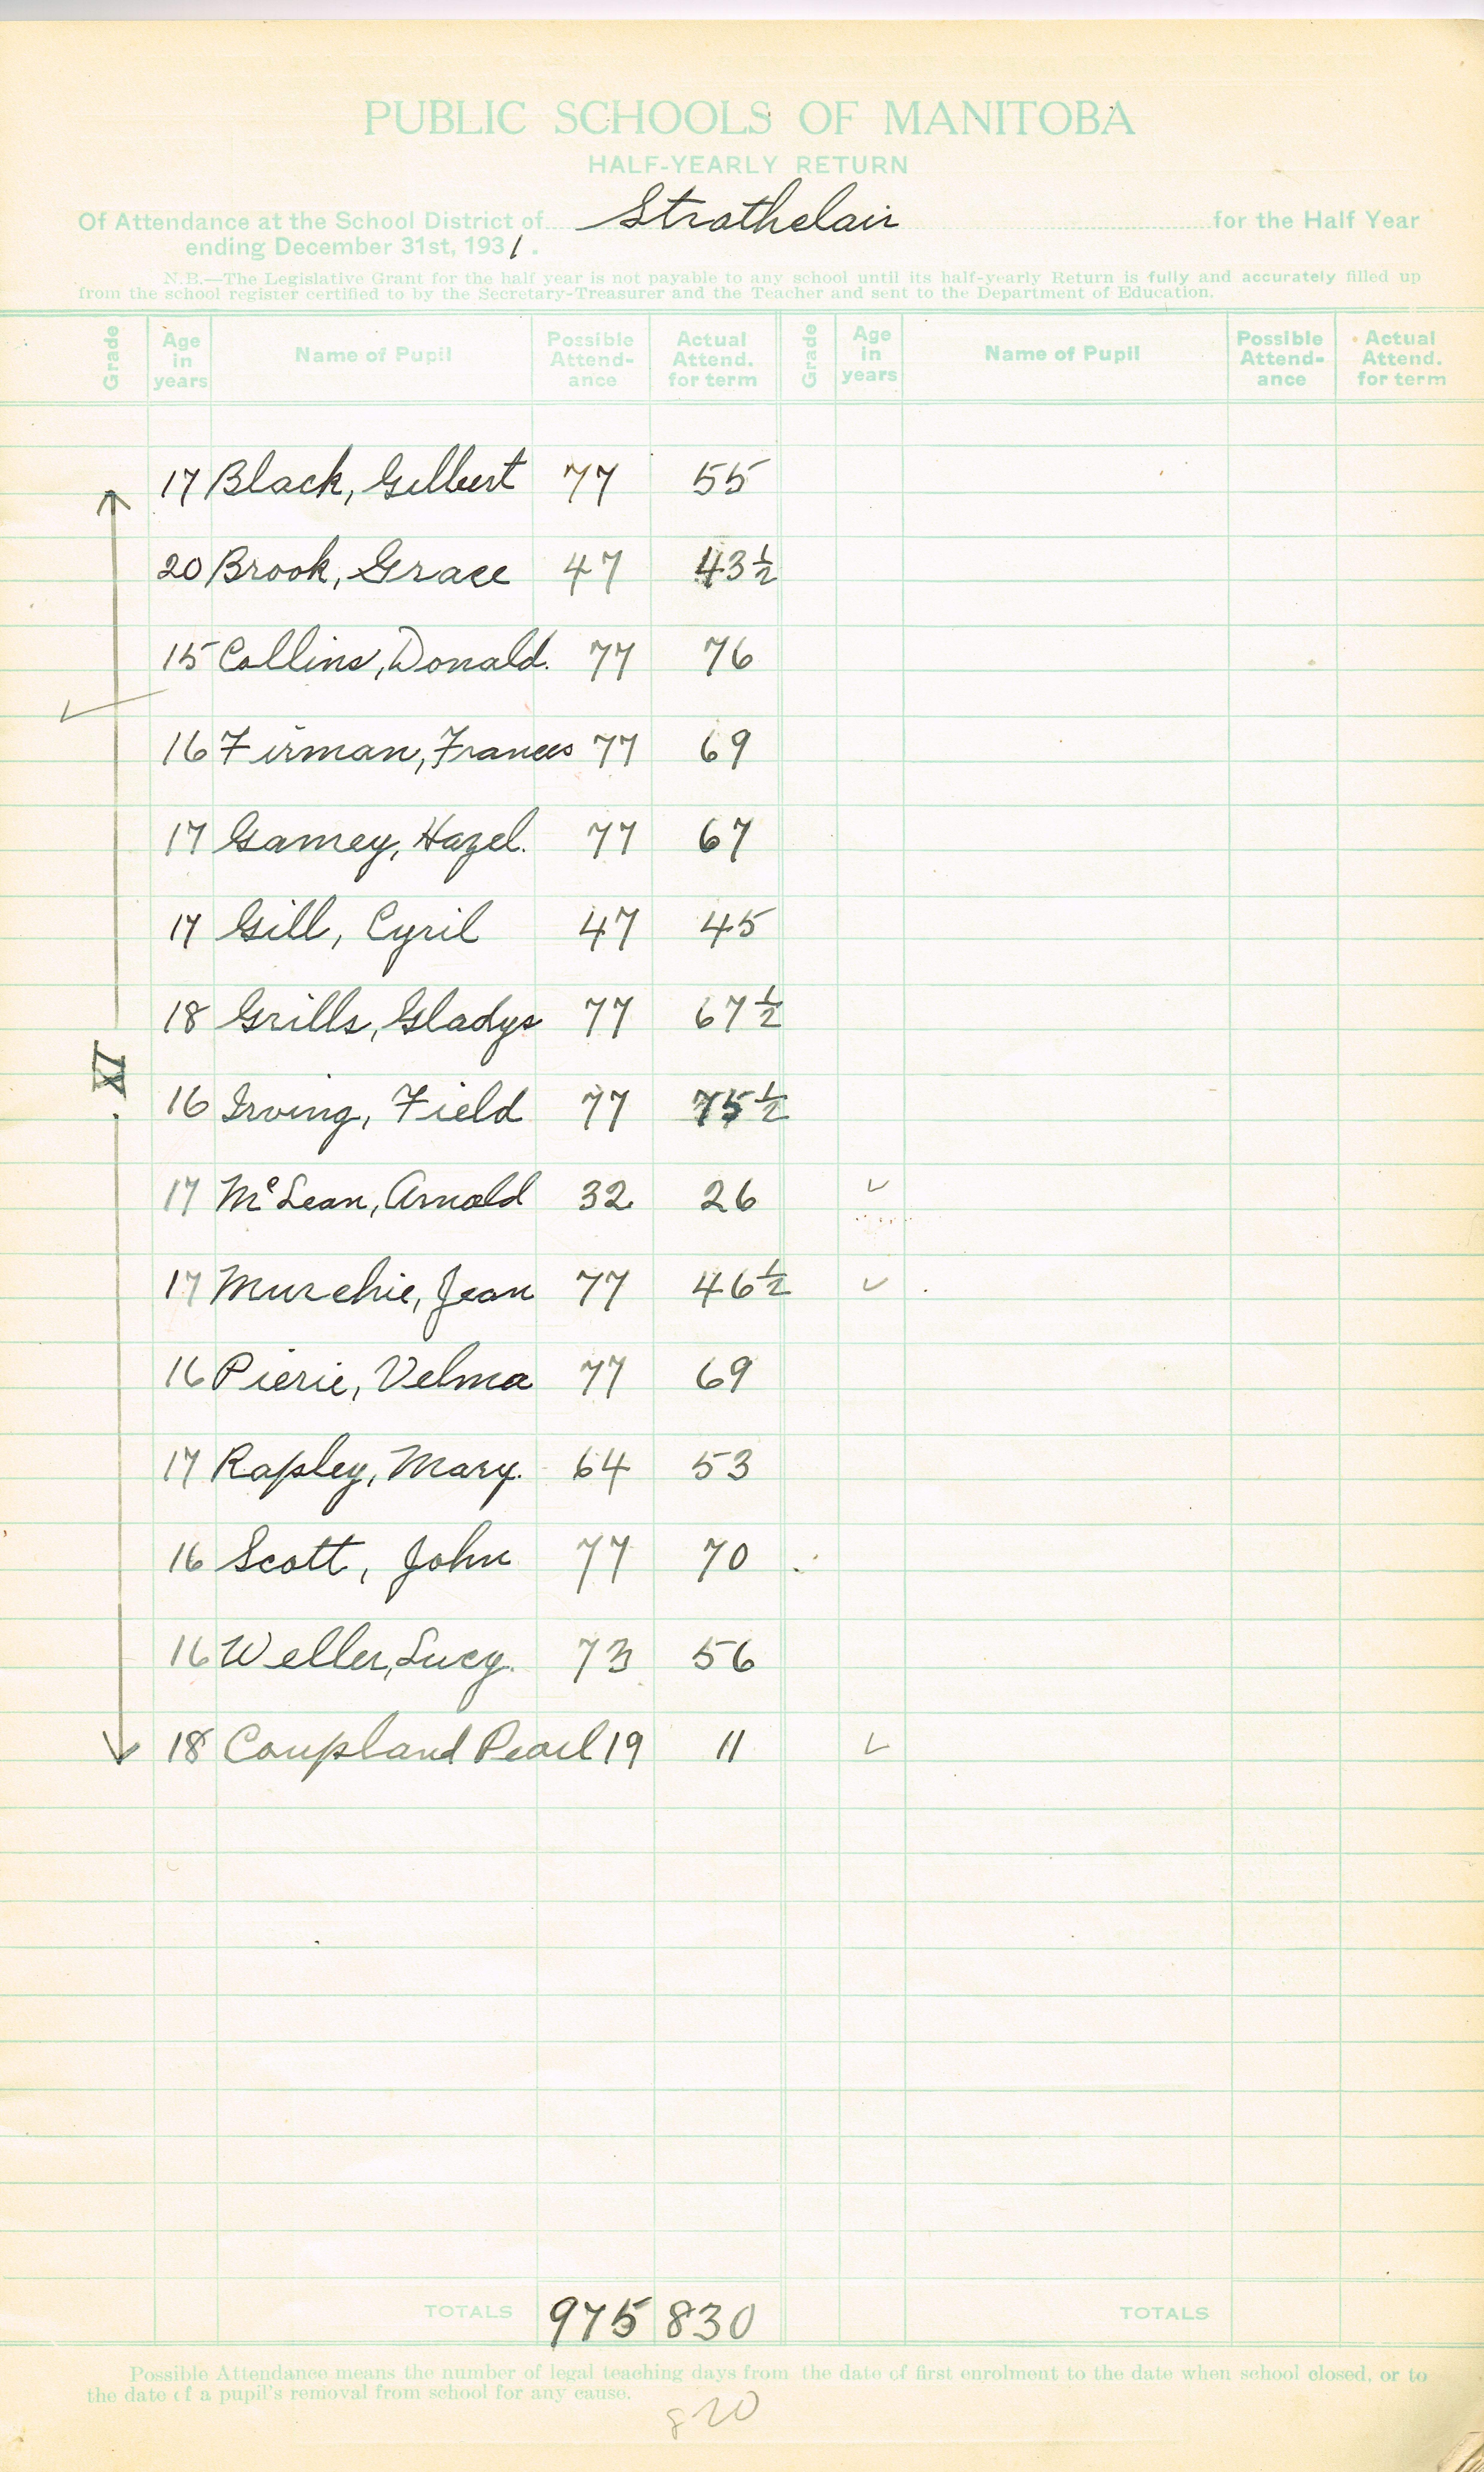 PUBLIC SCHOOLS OF MANITOBA
HALF-YEARLY RETURN
Of Attendance at the School District of Strathclair for the Half Year
ending December 31st, 1931.
N.B.—The Legislative Grant for the half year is not payable to any school until its half-yearly Return is fully and accurately filled up
from the school register certified to by the Secretary-Treasurer and the Teacher and sent to the Department of Education.
Grade Age in years Name of Pupil Possible Attend-ance Actual Attend. for term Grade Age in years Name of Pupil Possible Attend-ance Actual Attend. for term
17 Black, Gilbert 77 55
20 Brook, Grace 47 43½
15 Collins, Donald. 77 76
16 Firman, Frances 77 69
17 Gamey, Hazel. 77 67
17 Gill, Cyril 47 45
18 Grills, Gladys 77 67½
XI
16 Irving, Field 77 75½
17 McLean, Arnold 32 26
17 Murchie, Jean 77 46½
16 Pierie, Velma 77 69
17 Rapley, Mary. 64 53
16 Scott, John 77 70
16 Weller, Lucy. 73 56
18 Coupland Pearl 19 11
TOTALS 975 830 TOTALS
Possible Attendance means the number of legal teaching days from the date of first enrolment to the date when school closed, or to
the date of a pupil's removal from school for any cause.
820